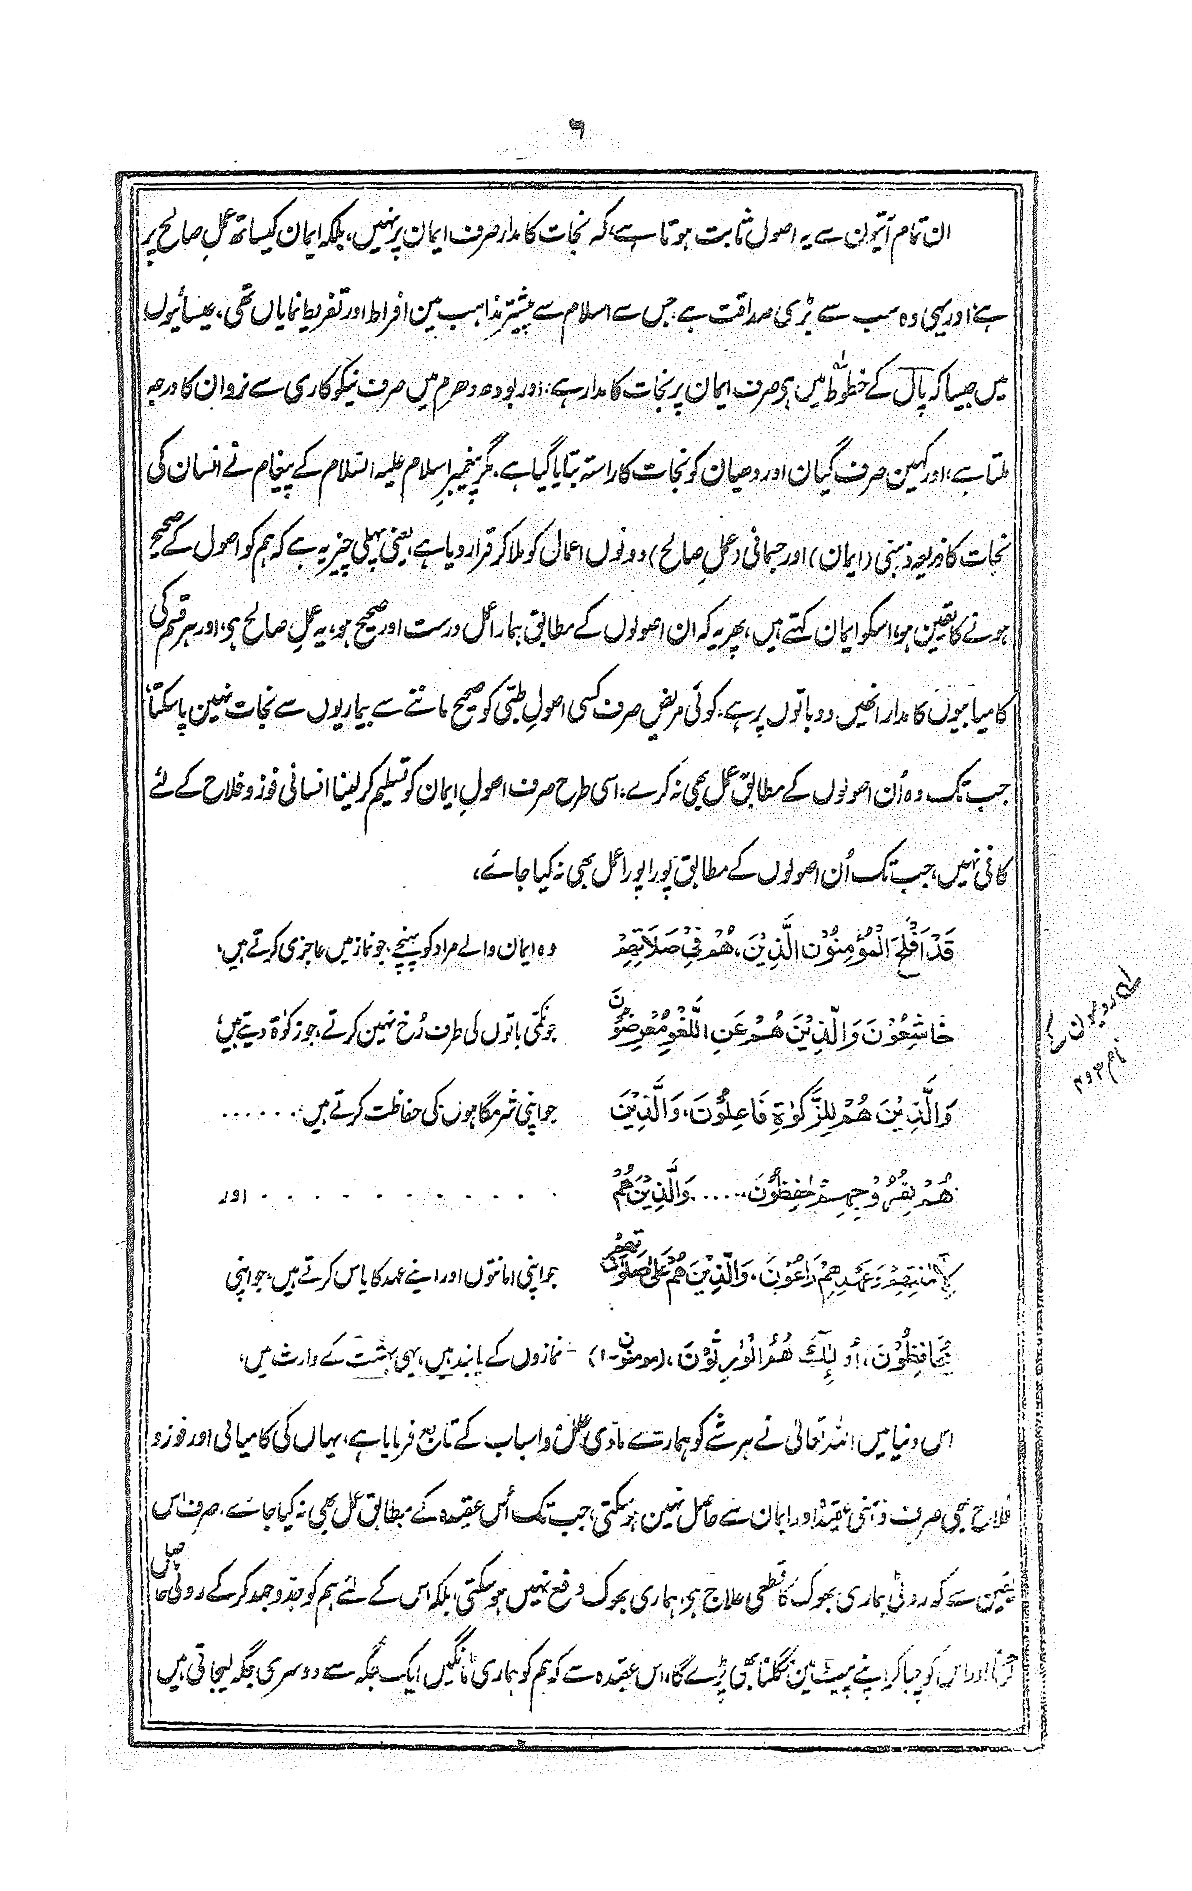 ٦
ان تمام آیتون سے یہ اصول ثابت ہوتا ہے، کہ نجات کا مدار صرف ایمان پر نہیں، بلکہ ایمان کیساتھ عملِ صالح پر
ہے، اور یہی وہ سب سے بڑی صداقت ہے، جس سے اسلام سے پیشتر مذاہب مین افراط اور تفریط نمایاں تھی، عیسائیوں
میں جیسا کہ پال کے خطوط میں ہی صرف ایمان پر نجات کا مدار ہے، اور بودھ دھرم میں صرف نیکوکاری سے نروان کا درجہ
ملتا ہے، اور کہین صرف گیان اور دھیان کو نجات کا راستہ بتایا گیا ہے، مگر پیغمبرِ اسلام علیہ السّلام کے پیغام نے انسان کی
نجات کا ذریعہ ذہنی (ایمان) اور جسمانی (عملِ صالح) دونوں اعمال کو ملا کر قرار دیا ہے، یعنی پہلی چیز یہ ہے کہ ہم کو اصول کے صحیح
ہونے کا یقین ہو، اسکو ایمان کہتے ہیں، پھر یہ کہ ان اصولوں کے مطابق ہمارا عمل درست اور صحیح ہو، یہ عملِ صالح ہی، اور ہر قسم کی
کامیابیوں کا مدار انھیں دو باتوں پر ہے، کوئی مریض صرف کسی اصولِ طبّی کو صحیح ماننے سے بیماریوں سے نجات نہین پا سکتا،
جب تک وہ اُن اصولوں کے مطابق عمل بھی نہ کرے، اسی طرح صرف اصولِ ایمان کو تسلیم کر لینا انسانی فوز و فلاح کے لئے
کافی نہیں، جب تک اُن اصولوں کے مطابق پورا پورا عمل بھی نہ کیا جائے،
قَدْ اَفْلَحَ الْمُؤْمِنُوْنَ الَّذِیْنَ، هُمْ فِیْ صَلَاتِهِمْ وہ ایمان والے مراد کو پہنچے، جو نماز میں عاجزی کرتے ہیں،
خَاشِعُوْنَ وَالَّذِیْنَ هُمْ عَنِ اللَّغْوِ مُعْرِضُوْنَ جو نکمی باتوں کی طرف رُخ نہین کرتے، جو زکوٰۃ دیتے ہیں،
وَالَّذِیْنَ هُمْ لِلزَّکٰوةِ فَاعِلُوْنَ، وَالَّذِیْنَ جو اپنی شرمگاہوں کی حفاظت کرتے ہیں، ......
هُمْ لِفُرُوْجِهِمْ حٰفِظُوْنَ ...... وَالَّذِیْنَ هُمْ ............ اور
لِاَمٰنٰتِهِمْ وَعَهْدِهِمْ رَاعُوْنَ، وَالَّذِیْنَ هُمْ عَلٰی صَلَوٰتِهِمْ جو اپنی امانتوں اور اپنے عہد کا پاس کرتے ہیں، جو اپنی
یُحَافِظُوْنَ، اُولٰٓئِكَ هُمُ الْوٰرِثُوْنَ، (مومنون-۱) نمازوں کے پابند ہیں، یہی بہشت کے وارث ہیں،
اس دنیا میں اللہ تعالیٰ نے ہر شے کو ہمارے مادّی علل و اسباب کے تابع فرمایا ہے، یہاں کی کامیابی اور فوز و
فلاح بھی صرف ذہنی عقیدہ اور ایمان سے حاصل نہین ہو سکتی، جب تک اُس عقیدہ کے مطابق عمل بھی نہ کیا جائے، صرف اس
یقین سے کہ روٹی ہماری بھوک کا قطعی علاج ہی، ہماری بھوک دفع نہیں ہو سکتی، بلکہ اس کے لئے ہم کو جد و جہد کر کے روٹی حاصل
کرنا اور اس کو چبا کر اپنے پیٹ مین نگلنا بھی پڑے گا، اس عقیدہ سے کہ ہم کو ہماری ٹانگیں ایک جگہ سے دوسری جگہ لیجاتی ہیں